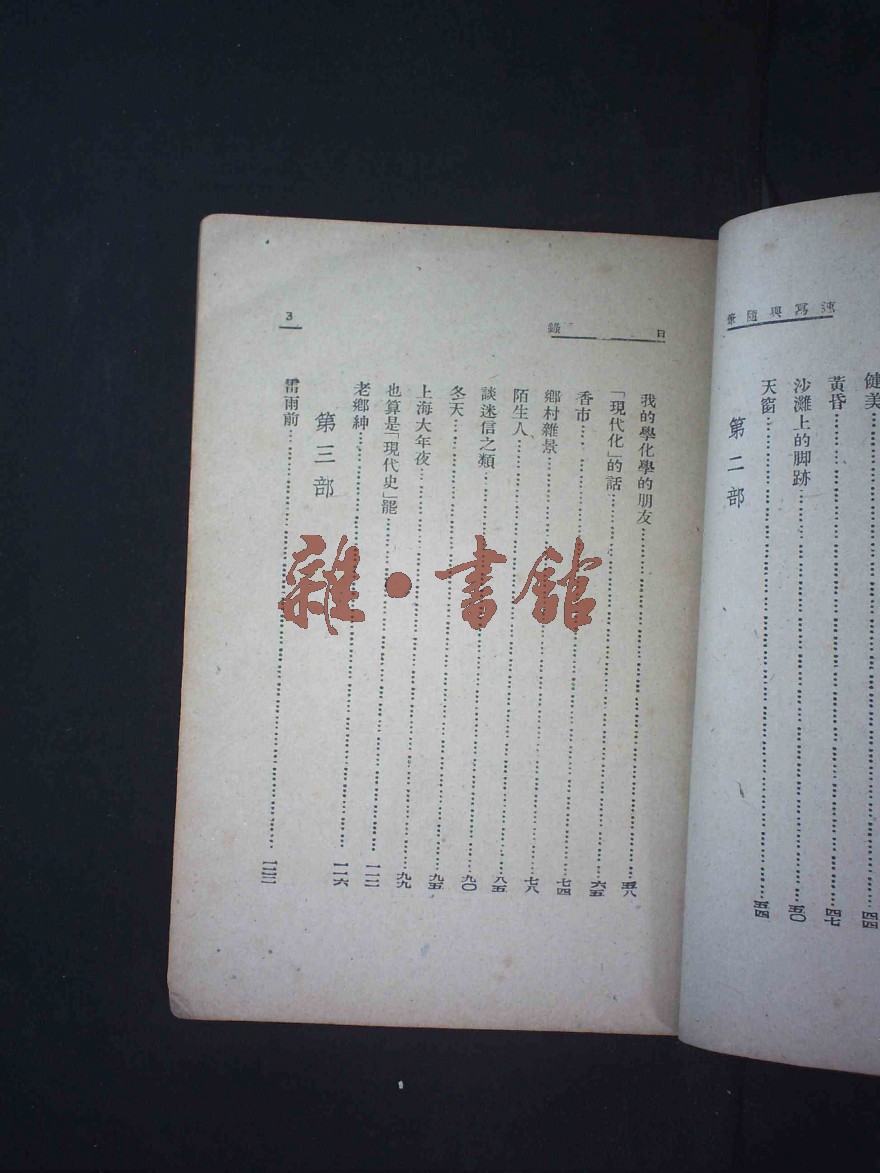 速寫與隨筆
健美……四四
黃昏……四七
沙灘上的脚跡……五〇
天窗……五四
第二部
目錄
我的學化學的朋友……五八
「現代化」的話……六五
香市……七四
鄉村雜景……七八
陌生人……八五
談迷信之類……九〇
冬天……九五
上海大年夜……九九
也算是「現代史」罷……一一二
老鄉紳……一一六
第三部
雷雨前……一二三
3
雜·書館